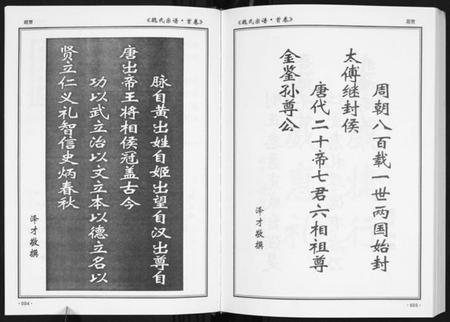 《魏氏宗谱·首卷》
脉自黄出姓自姬出望自汉出尊自
唐出帝王将相冠盖古今
功以武立治以文立本以德立名以
贤立仁义礼智信史炳春秋
泽才敬撰
《魏氏宗谱·首卷》
周朝八百载一世两国始封
太傅继封侯
唐代二十帝七君六相祖尊
金鉴孙尊公
泽才敬撰